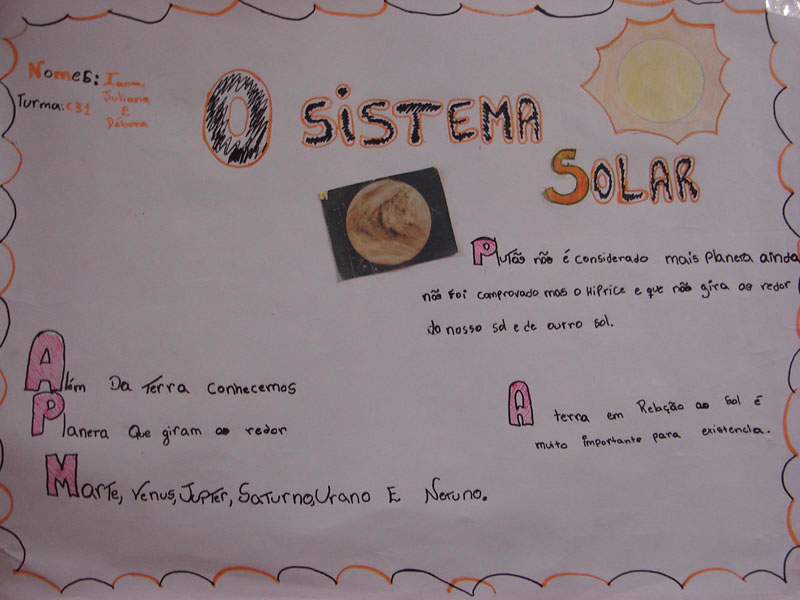 Nomes: Ianna,
Juliana
E
Débora
Turma: C31
O SISTEMA
SOLAR
Plutão não é considerado mais Planera ainda
não Foi comprovado mas o HiPrice e que não gira ao redor
do nosso sol e de ourro sol.
Além Da Terra conhecemos
Planera Que giram ao redor
Marte, Venus, JupTer, SaTurno, Urano E Neruno.
A terra em Relação ao Sol é
muito importante para existencia.